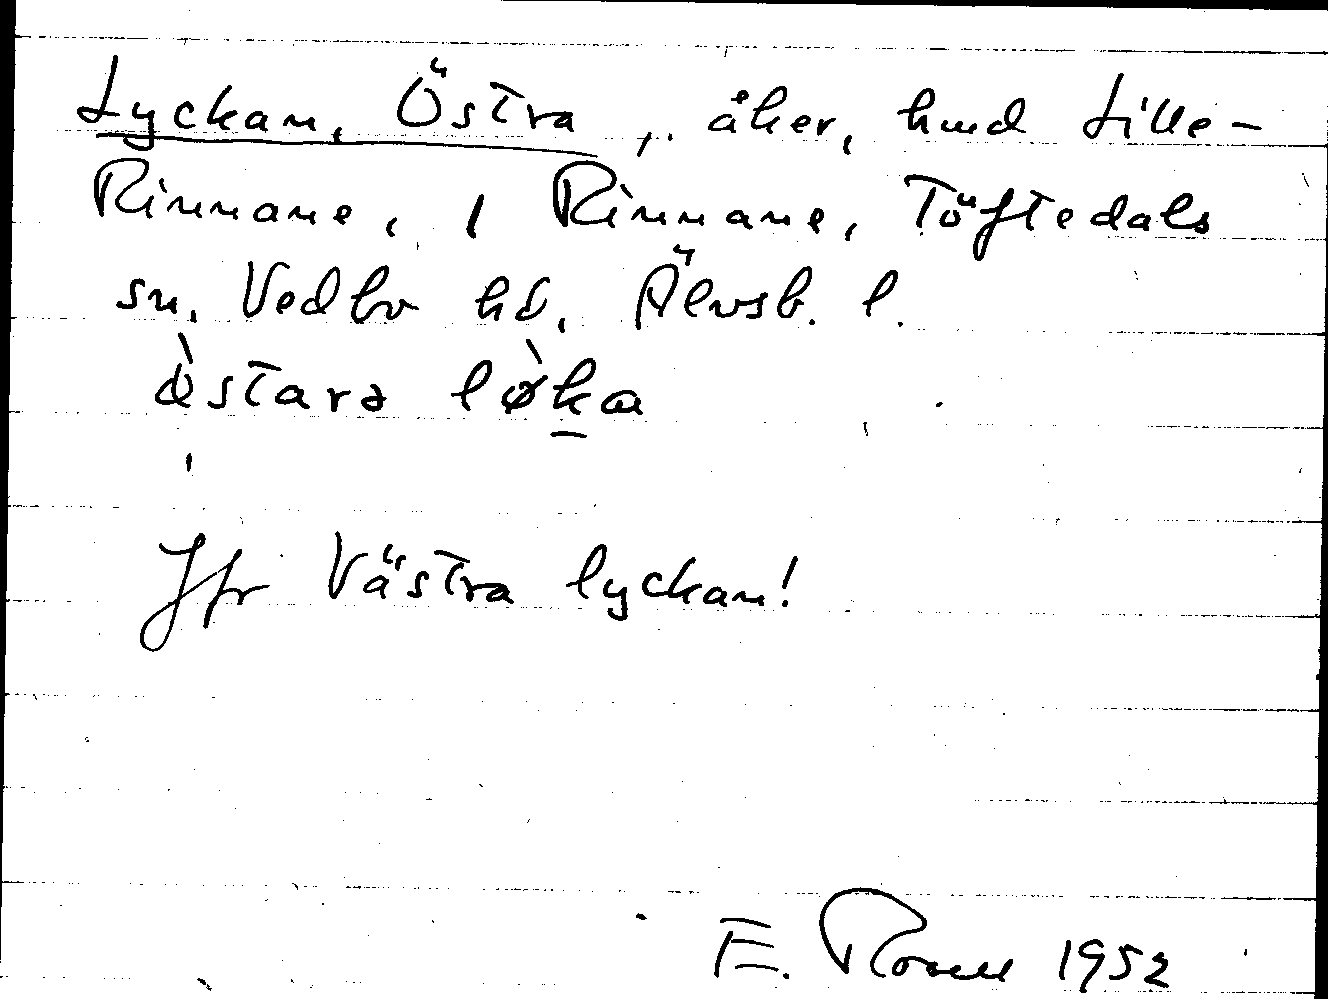 Lyckan, Östra, åker, hmd Lille-
Rinnane, 1 Rinnane, Töftedals
sn. Vedbo hd, Älvsb. l.
ø̀starə lø̀ḵa
Jfr Västra lyckan!
E. 1952